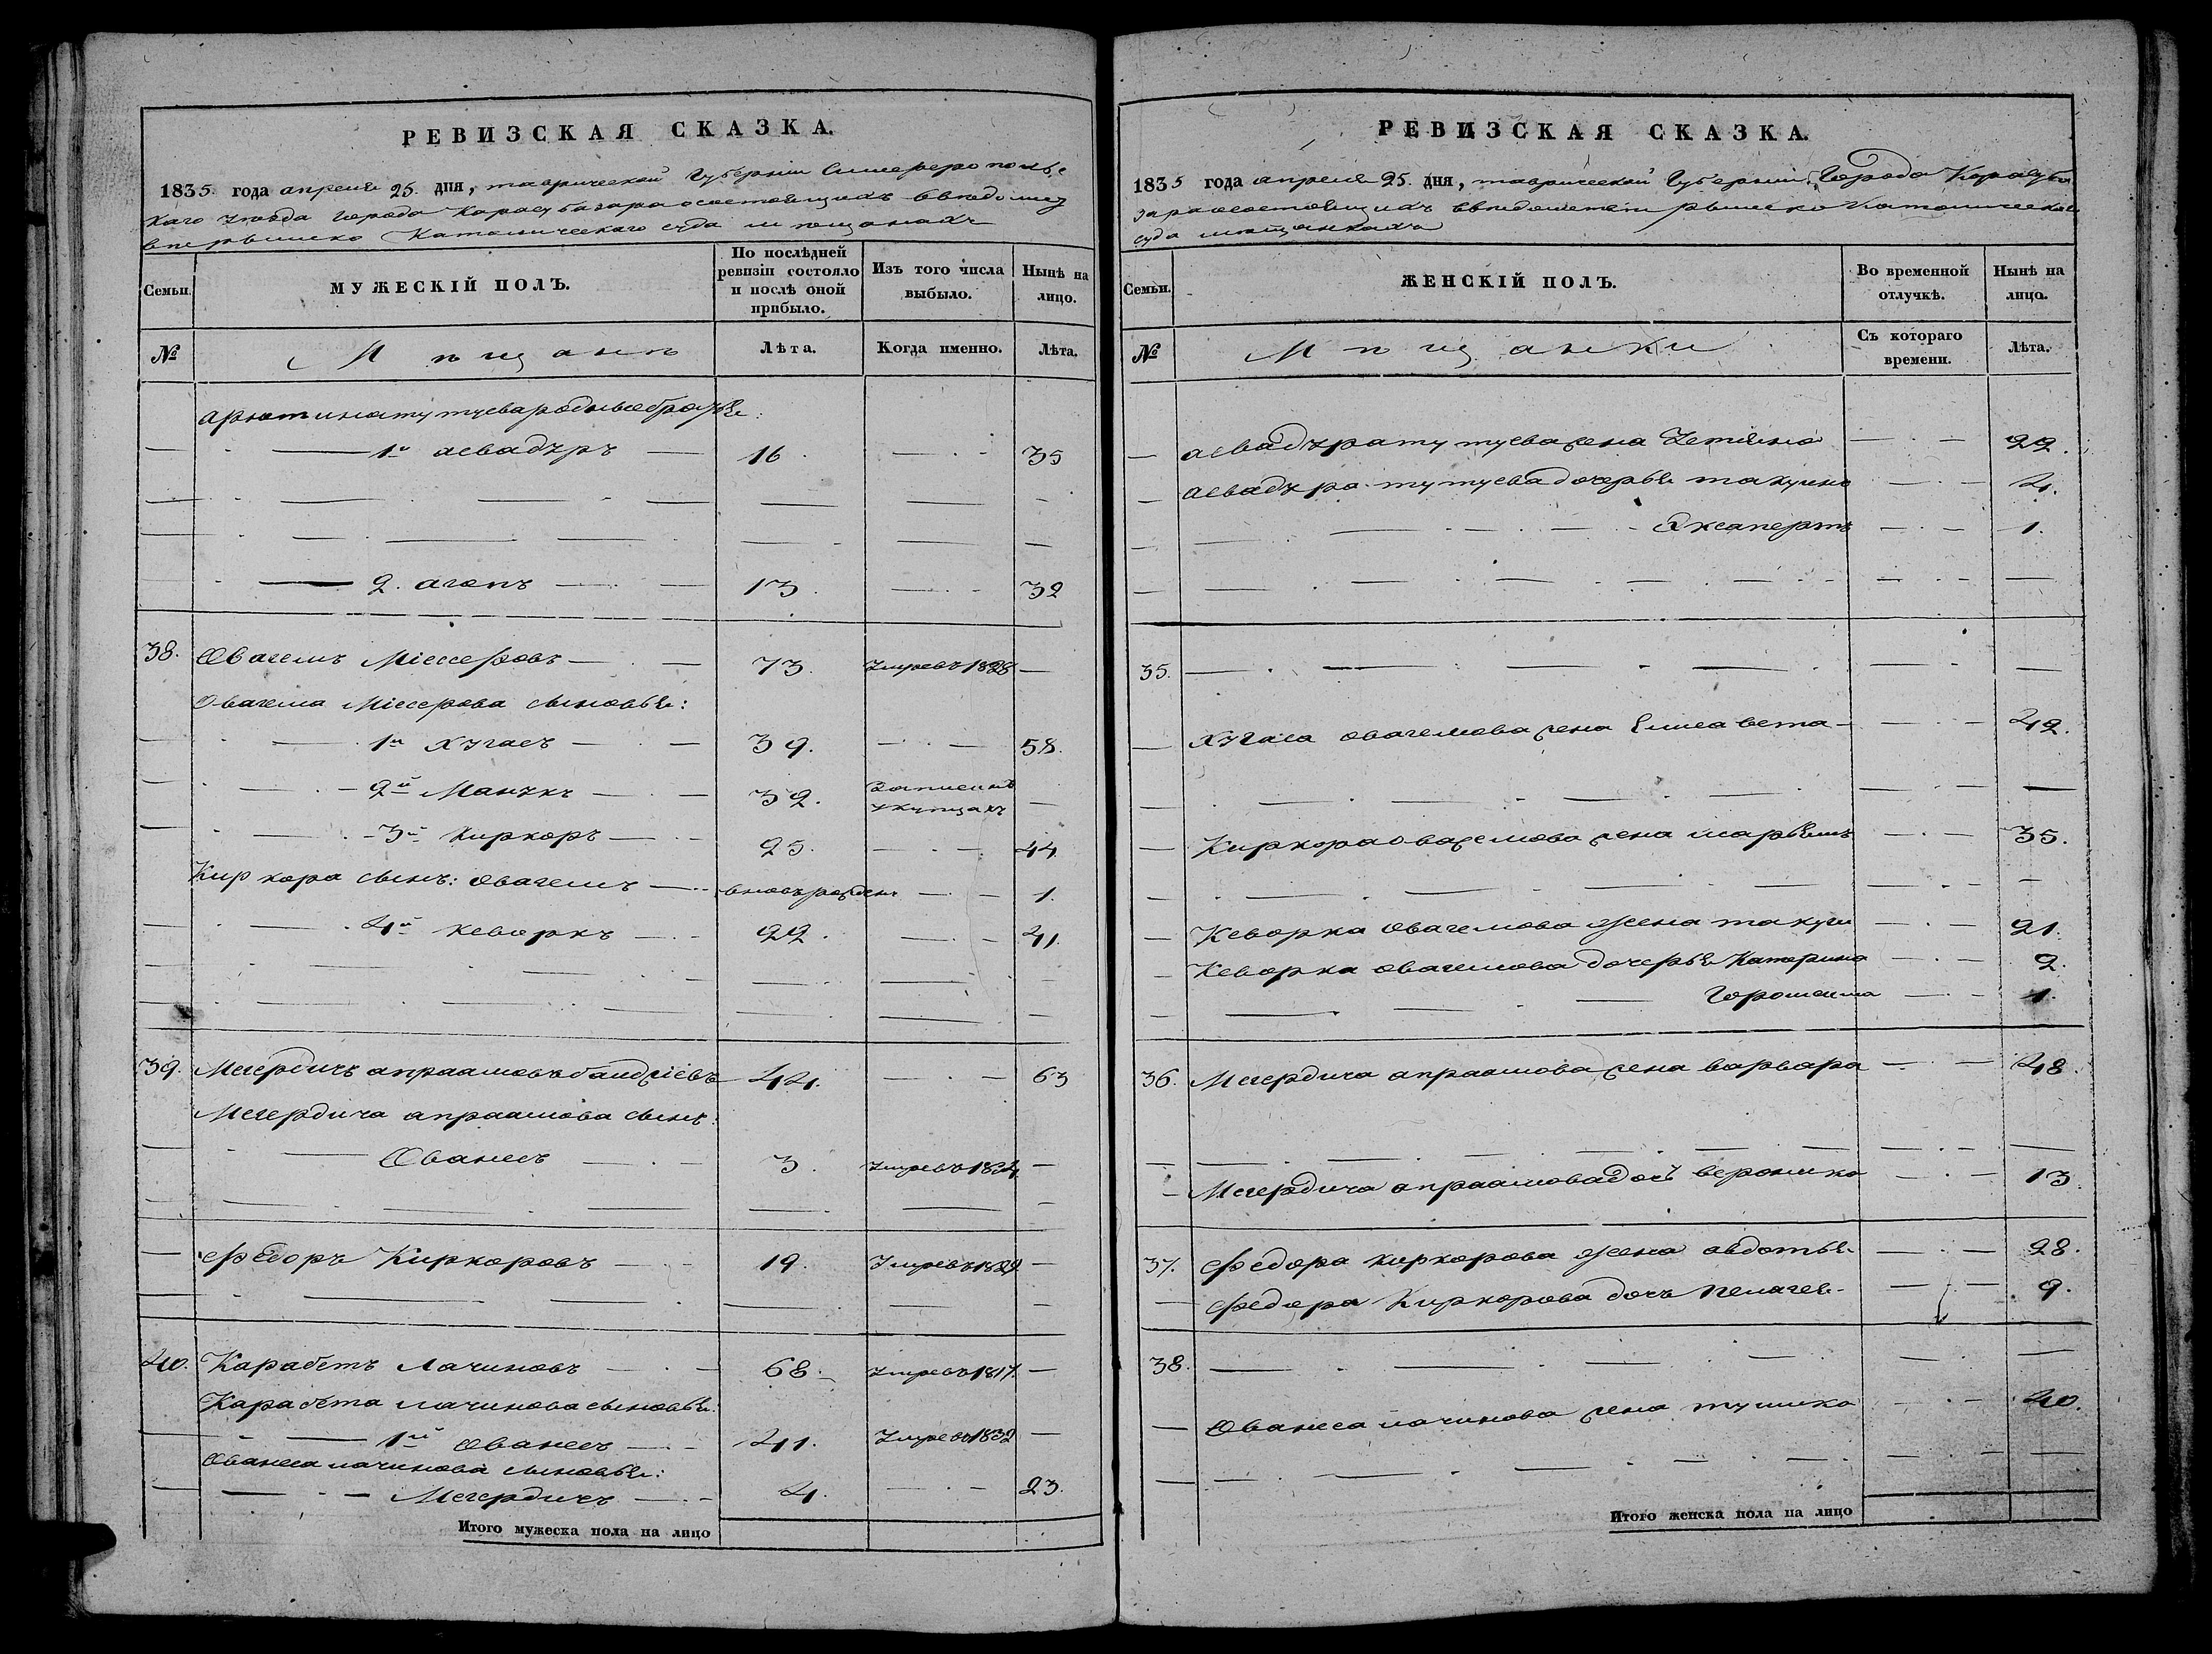 РЕВИЗСКАЯ СКАЗКА.
1835. года апреля 25. дня, таврической Губернии Симферополь
скаго уезда города Карасубазара о состоящихъ
Римско Католическаго суда мещанахъ
Семьи. МУЖЕСКІЙ ПОЛЪ. По послѣдней ревизіи состояло и послѣ оной прибыло. Изъ того числа выбыло. Нынѣ на лицо.
№ Мѣщанѣ Лѣта. Когда именно. Лѣта.
тутуева родные братья:
— 1й асвадуръ — 16. — 35
— 2. агопъ — 13. — 32
38. Овагемъ Міссеровъ — 73. Умре въ 1828 —
Овагема Міссерова сыновья:
— 1й Хугасъ — 39. — 58.
— 2й Манукъ — 32. Записанъ
в купцахъ —
— 3й Киркоръ — 25. — 44.
Киркора сынъ: Овагемъ — вновь рожден — 1.
— 4й Кеворкъ — 22. — 41.
39. Мегердичъ апраамовъ 44. — 63
Мегердича апраамова сынъ:
— Ованесъ — 3. Умре въ 1834 —
— Федоръ Киркоровъ — 19. Умре въ 1829 —
40. Карабетъ Лачиновъ — 68. Умре въ 1817. —
Карабета лачинова сыновья:
— 1й Ованесъ — 41. Умре въ 1832 —
Ованеса лачинова сыновья:
— Мегердичъ — 4. — 23.
Итого мужеска пола на лицо
РЕВИЗСКАЯ СКАЗКА.
1835 года апреля 25. дня, таврической Губернии, Города Карасуба
зара о состоящихъ в ведомстве римско католическаго
суда мещанкахъ
Семьи. ЖЕНСКІЙ ПОЛЪ. Во временной отлучкѣ. Нынѣ на лицо.
№ Мѣщанки Съ котораго времени. Лѣта.
— асвадура тутуева жена — 22.
— асвадура тутуева дочерья такугна — 4.
— 1.
35. —
— Хугаса овагемова жена Елисавета — 42.
— Киркора овагемова жена марьямъ — 35.
— Кеворка овагемова жена такуги — 21.
— Кеворка овагемова дочерья Катарина — 2.
— 1.
36. Мегердича апраамова жена варвара — 48.
— Мегердича апраамова дочь вероника — 13.
37. Федора киркорова жена авдотья — 28.
— Федора Киркорова дочь пелагея — 9.
38. —
— Ованеса лачинова жена тушика — 40.
Итого женска пола на лицо